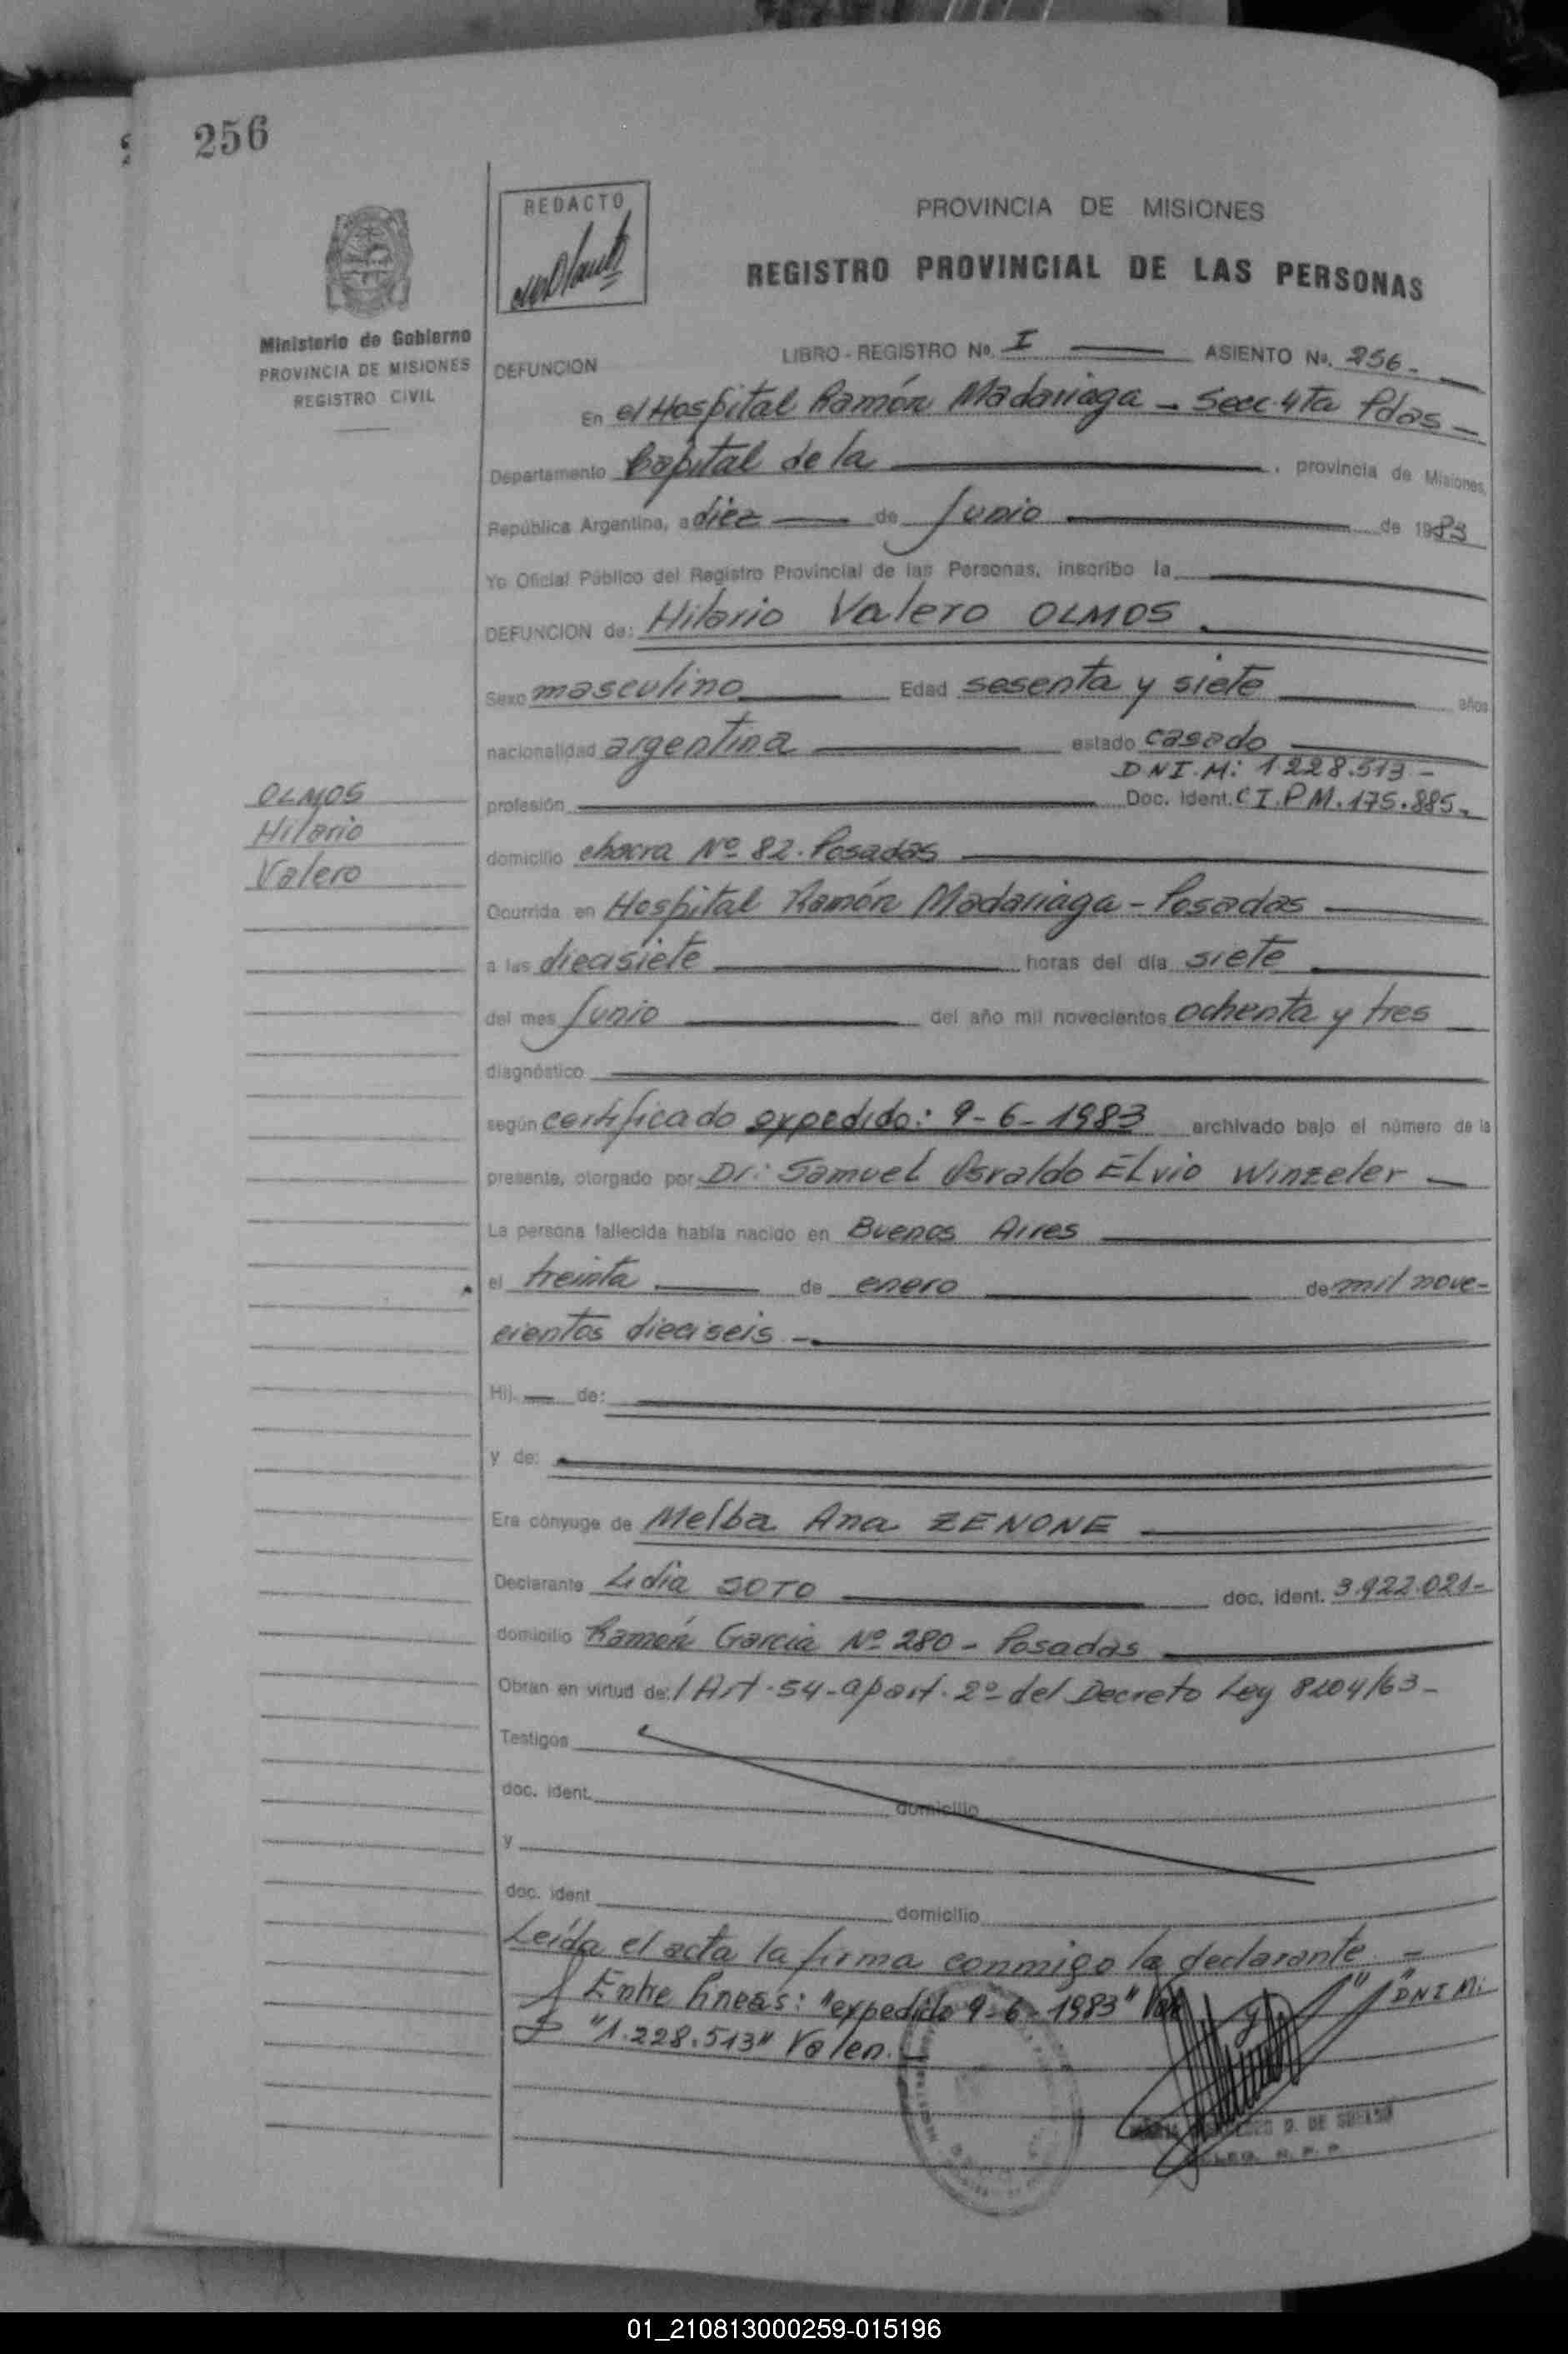 256
REDACTO
PROVINCIA DE MISIONES
REGISTRO PROVINCIAL DE LAS PERSONAS
Ministerio de Gobierno
PROVINCIA DE MISIONES
REGISTRO CIVIL
DEFUNCION
LIBRO - REGISTRO No. I ASIENTO No. 256-
En el Hospital Ramón Madariaga - Secc. 4ta Pdas -
Departamento Capital de la , provincia de Misiones,
República Argentina, a diez de Junio de 1983
Yo Oficial Público del Registro Provincial de las Personas, inscribo la
DEFUNCION de: Hilario Valero OLMOS.
Sexo masculino Edad sesenta y siete años
nacionalidad argentina estado casado
DNI.M: 1228.513-
profesión Doc. Ident. CI.PM.175.885.
OLMOS
Hilario
Valero
domicilio chacra Nº 82. Posadas
Ocurrida en Hospital Ramón Madariaga - Posadas
a las diecisiete horas del día siete
del mes Junio del año mil novecientos ochenta y tres
diagnóstico
según certificado expedido: 9-6-1983 archivado bajo el número de la
presente, otorgado por Dr: Samuel Osvaldo Elvio Winzeler -
La persona fallecida había nacido en Buenos Aires
el treinta de enero de mil nove-
cientos dieciseis -
Hij de:
y de:
Era cónyuge de Melba Ana ZENONE
Declarante Lidia SOTO doc. ident. 3.922.021-
domicilio Ramón Garcia Nº 280 - Posadas
Obran en virtud de: l Art. 54 - apart. 2º del Decreto Ley 8204/63-
Testigos
doc. ident. domicilio
y
doc. ident domicilio
Leída el acta la firma conmigo la declarante -
Entre líneas: "expedido 9-6-1983" y "DNI M:
"1.228.513" Valen.
01_210813000259-015196